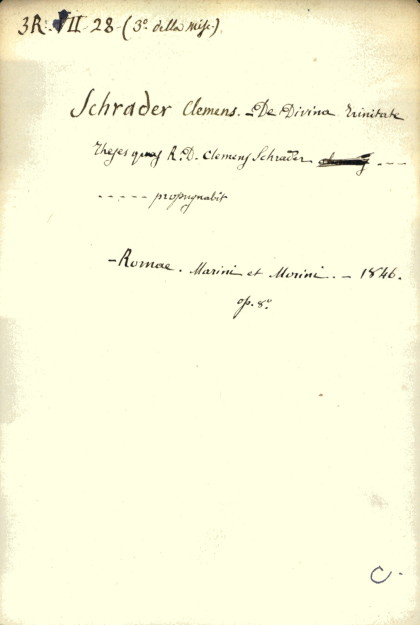 3R. VII 28 (3º della Misc.)
Schrader Clemens. - De Divina Trinitate
Theses quas R. D. Clemens Schrader ---
----- propugnabit
- Romae. Marini et Morini. - 1846.
op. 8º
C.